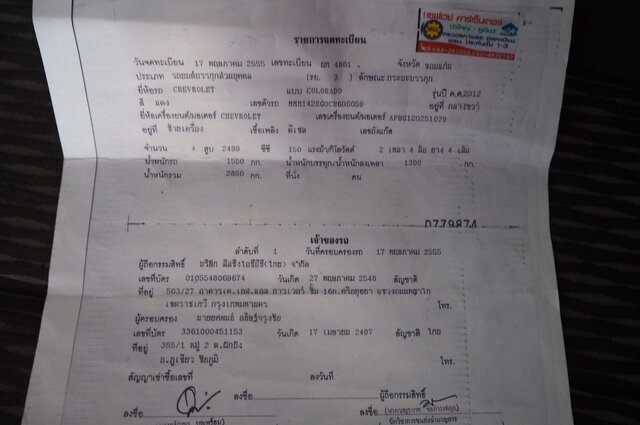 เซฟเวย์ คาร์เซ็นเตอร์
รายการจดทะเบียน
วันจดทะเบียน 17 พฤษภาคม 2555 เลขทะเบียน ผก 4861 จังหวัด ขอนแก่น
ประเภท รถยนต์บรรทุกส่วนบุคคล (รย. 3 ) ลักษณะ กระบะบรรทุก
ยี่ห้อรถ CHEVROLET แบบ COLORADO รุ่นปี ค.ศ.2012
สี แดง เลขตัวรถ MMM142EG0CH600059 อยู่ที่ กลางขวา
ยี่ห้อเครื่องยนต์/มอเตอร์ CHEVROLET เลขเครื่องยนต์/มอเตอร์ APHG120251079
อยู่ที่ ซ้ายเครื่อง เชื้อเพลิง ดีเซล เลขถังแก๊ส
จำนวน 4 สูบ 2499 ซีซี 150 แรงม้า/กิโลวัตต์ 2 เพลา 4 ล้อ ยาง 4 เส้น
น้ำหนักรถ 1550 กก. น้ำหนักบรรทุก/น้ำหนักลงเพลา 1300 กก.
น้ำหนักรวม 2850 กก. ที่นั่ง คน
0779874
เจ้าของรถ
ลำดับที่ 1 วันที่ครอบครองรถ 17 พฤษภาคม 2555
ผู้ถือกรรมสิทธิ์ บริษัท ลีสซิ่งไอซีบีซี(ไทย) จำกัด
เลขที่บัตร 0105548069674 วันเกิด 27 พฤษภาคม 2548 สัญชาติ
ที่อยู่ 503/27 อาคารเค.เอส.แอล ทาวเวอร์ ชั้น 16ถ.ศรีอยุธยา แขวงถนนพญาไท
เขตราชเทวี กรุงเทพมหานคร โทร.
ผู้ครอบครอง
เลขที่บัตร 3361000451153 วันเกิด 17 เมษายน 2497 สัญชาติ ไทย
ที่อยู่ 355/1 หมู่ 2 ต.ผักปัง
อ.ภูเขียว ชัยภูมิ โทร.
สัญญาเช่าซื้อเลขที่ ลงวันที่
ลงชื่อ ผู้ถือกรรมสิทธิ์
ลงชื่อ ลงชื่อ